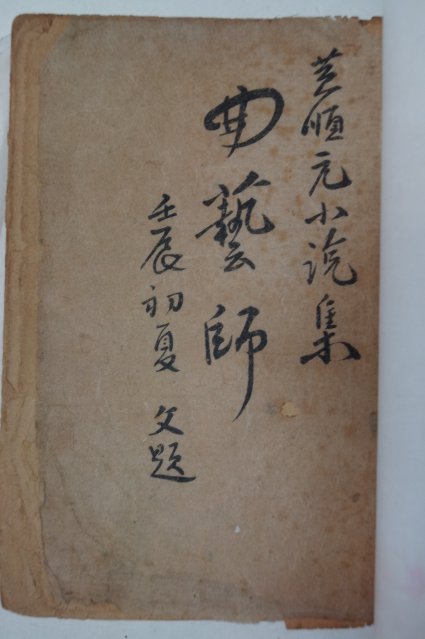 芸順元小说集
曲藝師
壬辰初夏 文題